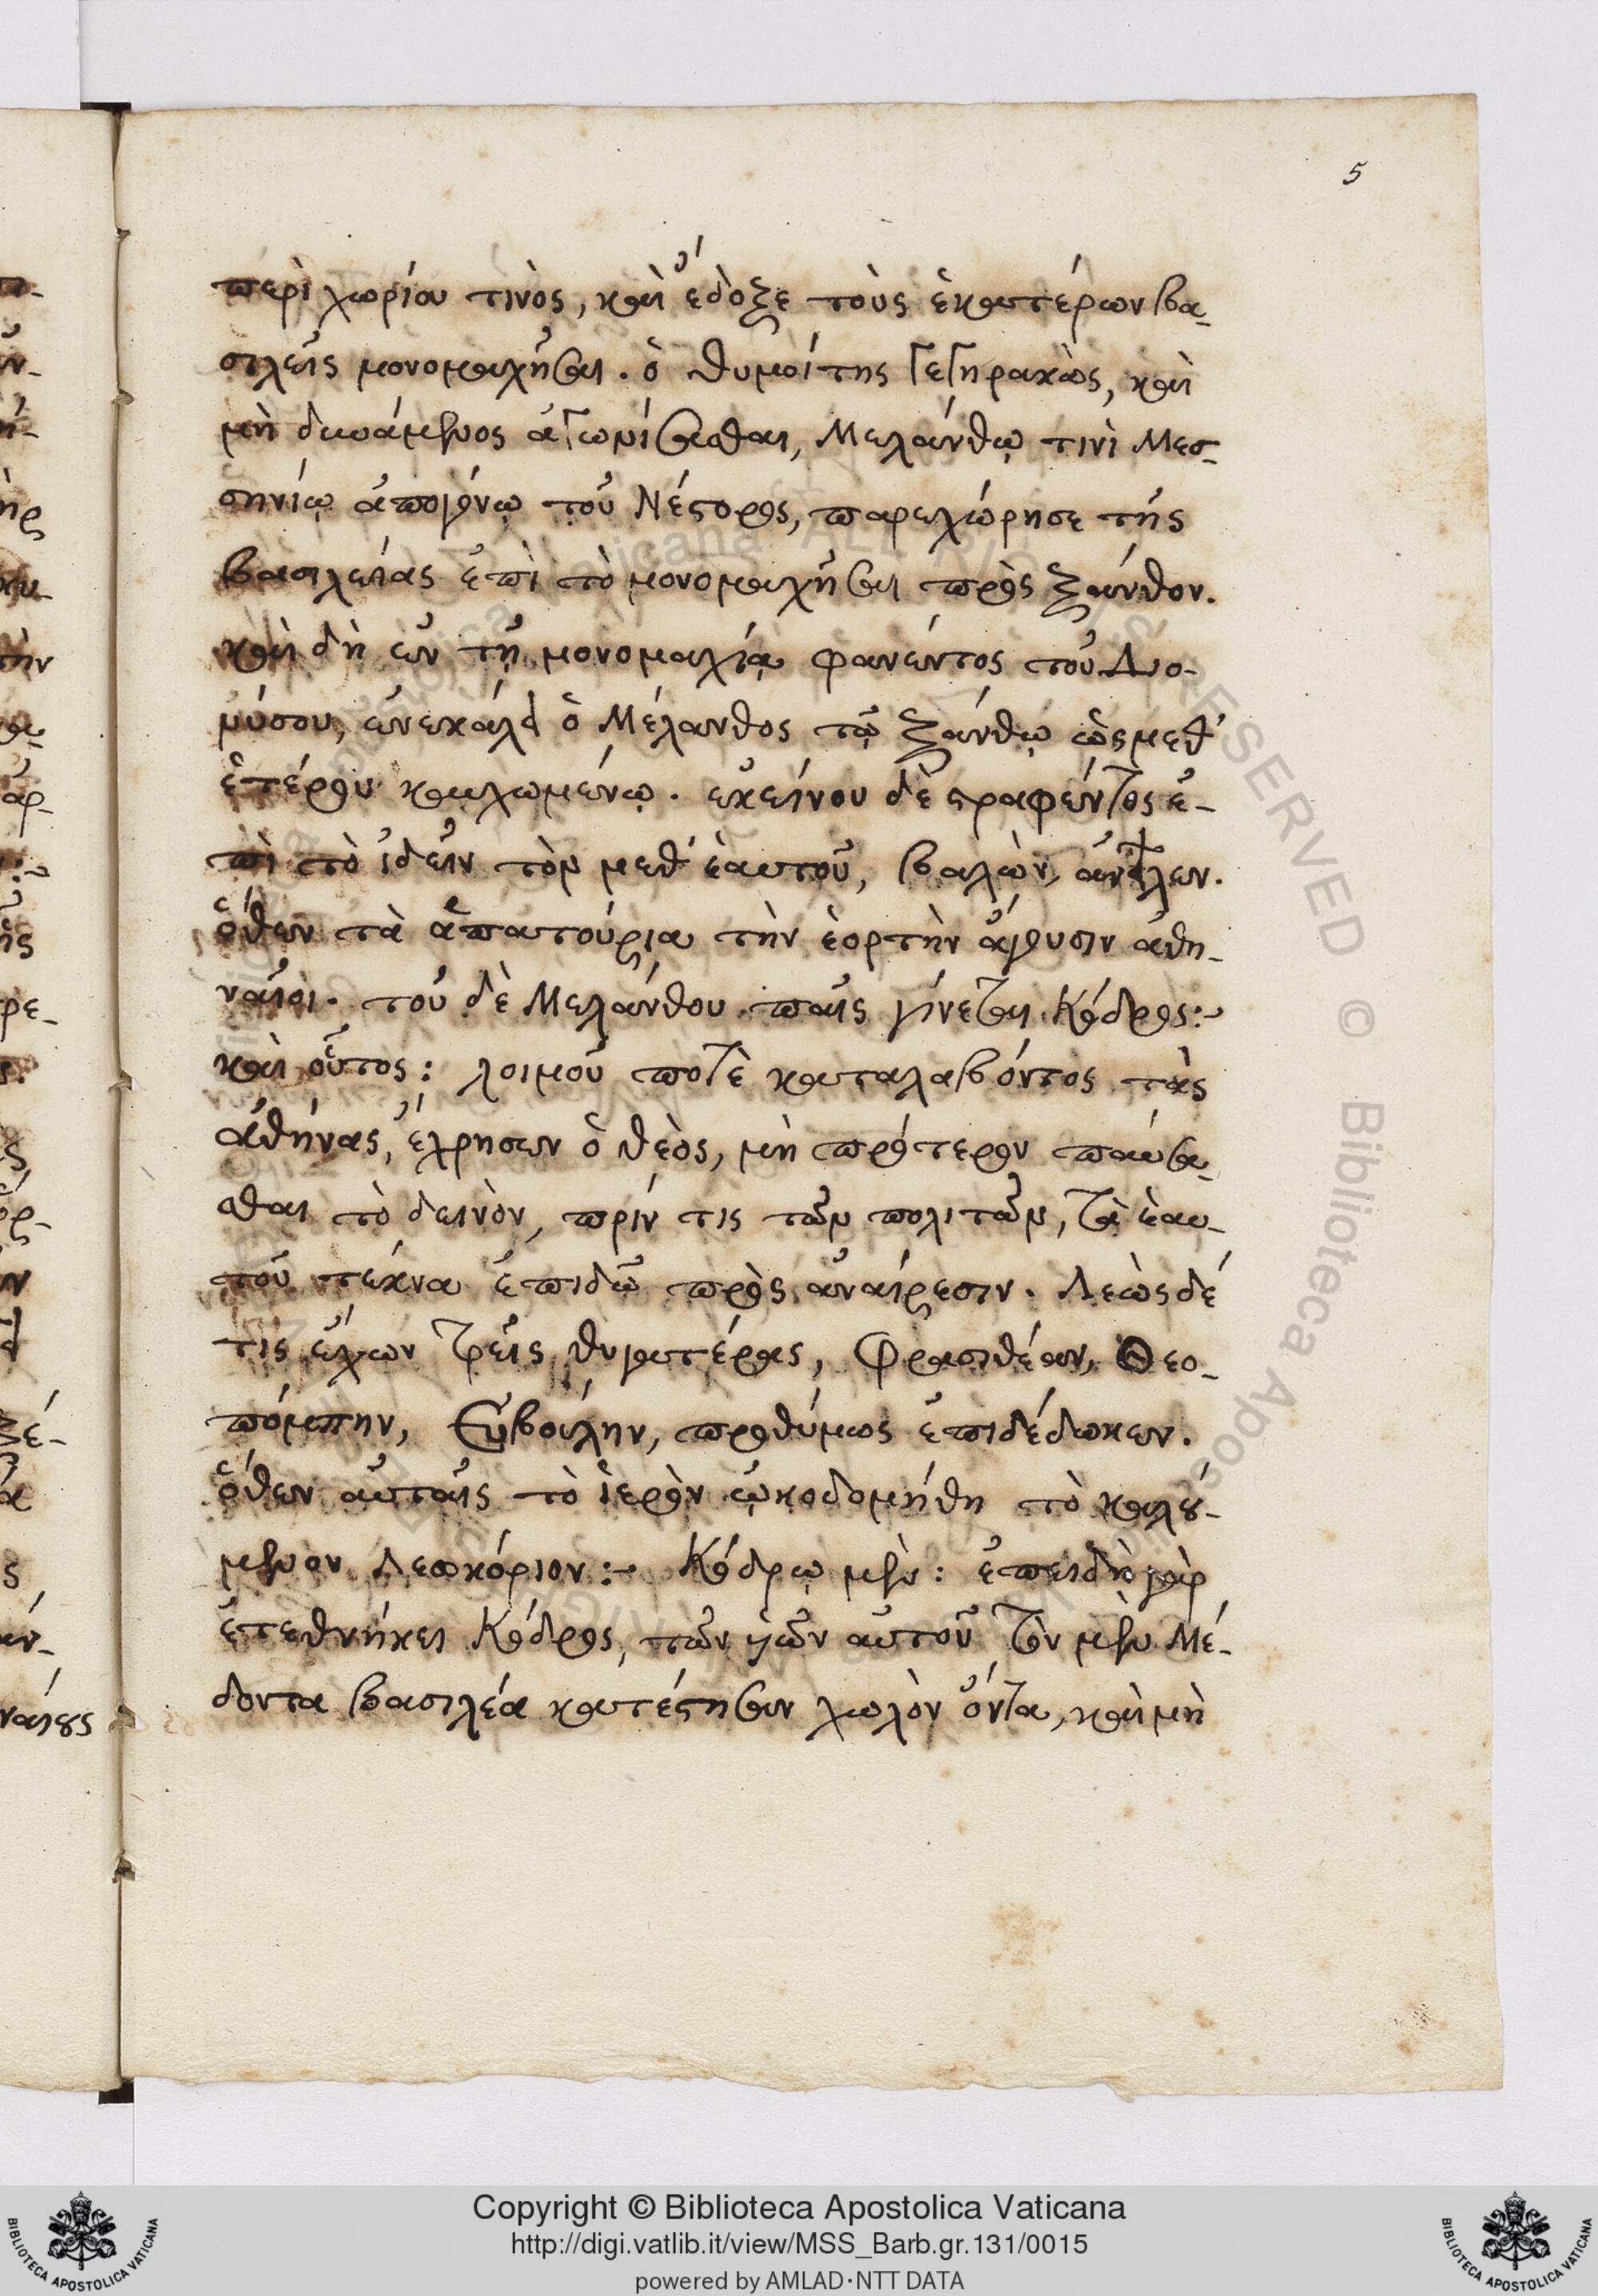 5
περὶ χωρίου τινὸς, καὶ ἔδοξε τοὺς ἑκατέρων βα-
σιλεῖς μονομαχῆσαι. ὁ θυμοίτης γεγηρακὼς, καὶ
μὴ δυνάμενος ἀγωνίσασθαι, Μελάνθῳ τινὶ Μεσ-
σηνίῳ ἀπογόνῳ τοῦ Νέστορος, παρεχώρησε τῆς
βασιλείας ἐπὶ τὸ μονομαχῆσαι πρὸς Ξάνθον.
καὶ δὴ ἐν τῇ μονομαχίᾳ φανέντος τοῦ Διο-
νύσου, ἐνεκάλει ὁ Μέλανθος τῷ Ξάνθῳ ὡς μεθ'
ἑτέρου καλωμένῳ. ἐκείνου δὲ στραφέντος ἐ-
πὶ τὸ ἰδεῖν τὸν μεθ' ἑαυτοῦ, βαλὼν, ἀνεῖλεν.
ὅθεν τὰ ἀπατούρια τὴν ἑορτὴν ἄγουσιν ἀθη-
ναῖοι. τοῦ δὲ Μελάνθου παῖς γίνεται Κόδρος:
καὶ οὗτος: λοιμοῦ ποτὲ καταλαβόντος τὰς
ἀθήνας, ἔχρησεν ὁ θεὸς, μὴ πρότερον παύσα
σθαι τὸ δεινὸν, πρίν τις τῶν πολιτῶν, τὰ ἑαυ-
τοῦ τέκνα ἐπιδῷ πρὸς ἀναίρεσιν. Λεὼς δέ
τις ἔχων τρεῖς θυγατέρας, Φρασιθέαν, Θεο-
πόμπην, Εὐβούλην, προθύμως ἐπιδέδωκεν.
ὅθεν αὐταῖς τὸ ἱερὸν ᾠκοδομήθη τὸ καλού-
μενον Λεωκόριον: Κόδρῳ μὲν: ἐπειδὴ γὰρ
ἐτεθνήκει Κόδρος, τῶν υἱῶν αὐτοῦ τὸν μὲν Μέ-
δοντα βασιλέα κατέστησαν χωλὸν ὄντα, καὶ μὴ
Copyright © Biblioteca Apostolica Vaticana
http://digi.vatlib.it/view/MSS_Barb.gr.131/0015
powered by AMLAD·NTT DATA
BIBLIOTECA APOSTOLICA VATICANA
BIBLIOTECA APOSTOLICA VATICANA